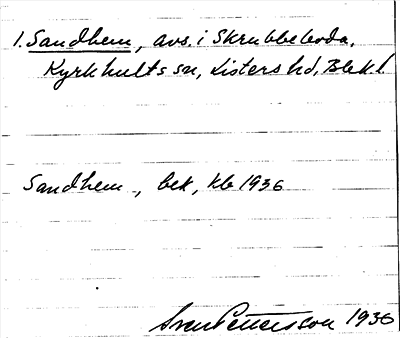 1. Sandhem, avs. i Skrubbeboda,
Kyrkhults sn, Listers hd, Blekl.
Sandhem, bek, kb 1936
Sven Pettersson 1936